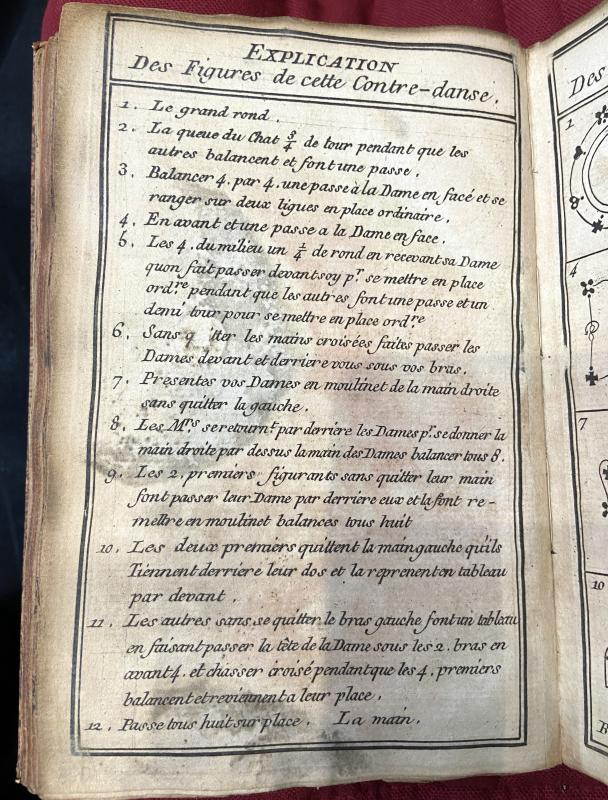 EXPLICATION
Des Figures de cette Contre-danse.
1. Le grand rond.
2. La queue du Chat 3/4 de tour pendant que les
autres balancent et font une passe.
3. Balancer 4. par 4. une passe à la Dame en facé et se
ranger sur deux ligues en place ordinaire.
4. En avant et une passe a la Dame en face.
5. Les 4. du milieu un 1/4 de rond en recevant sa Dame
quon fait passer devant soy pr. se mettre en place
ordre pendant que les autres font une passe et un
demi tour pour se mettre en place ordre
6. Sans q itter les mains croisées faites passer les
Dames devant et derriere vous sous vos bras.
7. Presentes vos Dames en moulinet de la main droite
sans quitter la gauche.
8. Les Mrs se retournt par derriere les Dames pr. se donner la
main droite par dessus la main des Dames balancer tous 8.
9. Les 2. premiers figurants sans quitter leur main
font passer leur Dame par derriere eux et la font re-
mettre en moulinet balances tous huit
10. Les deux premiers quittent la main gauche qu'ils
Tiennent derriere leur dos et la reprenent en tableau
par devant.
11. Les autres sans se quitter le bras gauche font un tableau
en faisant passer la tête de la Dame sous les 2. bras en
avant 4. et chasser croisé pendant que les 4. premiers
balancent et reviennent a leur place.
12. Passe tous huit sur place. La main.
Des
1
8
4
7
10
R